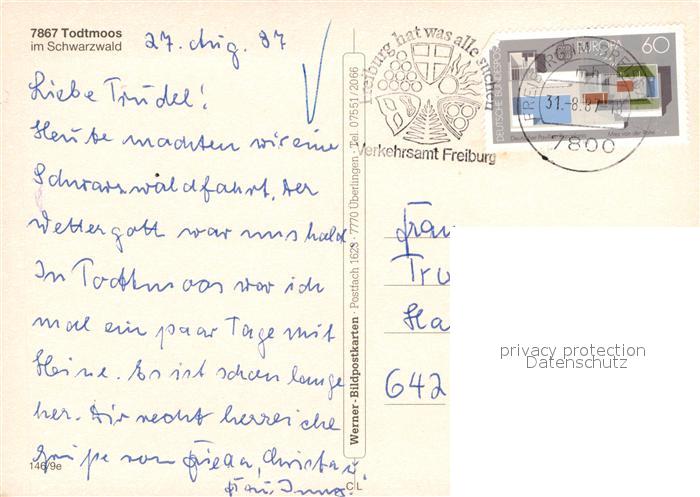 7867 Todtmoos
im Schwarzwald
27. Aug. 87
Liebe Trudel!
Heute machten wir eine
Schwarzwaldfahrt, der
Wettergott war uns hold.
In Todtmoos war ich
mal ein paar Tage mit
Heine. Es ist schon lange
her. Dir recht herzliche
Grüße von
146/9e
Werner-Bildpostkarten · Postfach 1623 · 7770 Überlingen · Tel. 07551/2066
CL
Freiburg hat was alle suchen
Verkehrsamt Freiburg
DEUTSCHE BUNDESPOST
EUROPA
60
Mies van der Rohe
31.-8.87
7800
Frau
Tru
Ha
642
privacy protection
Datenschutz